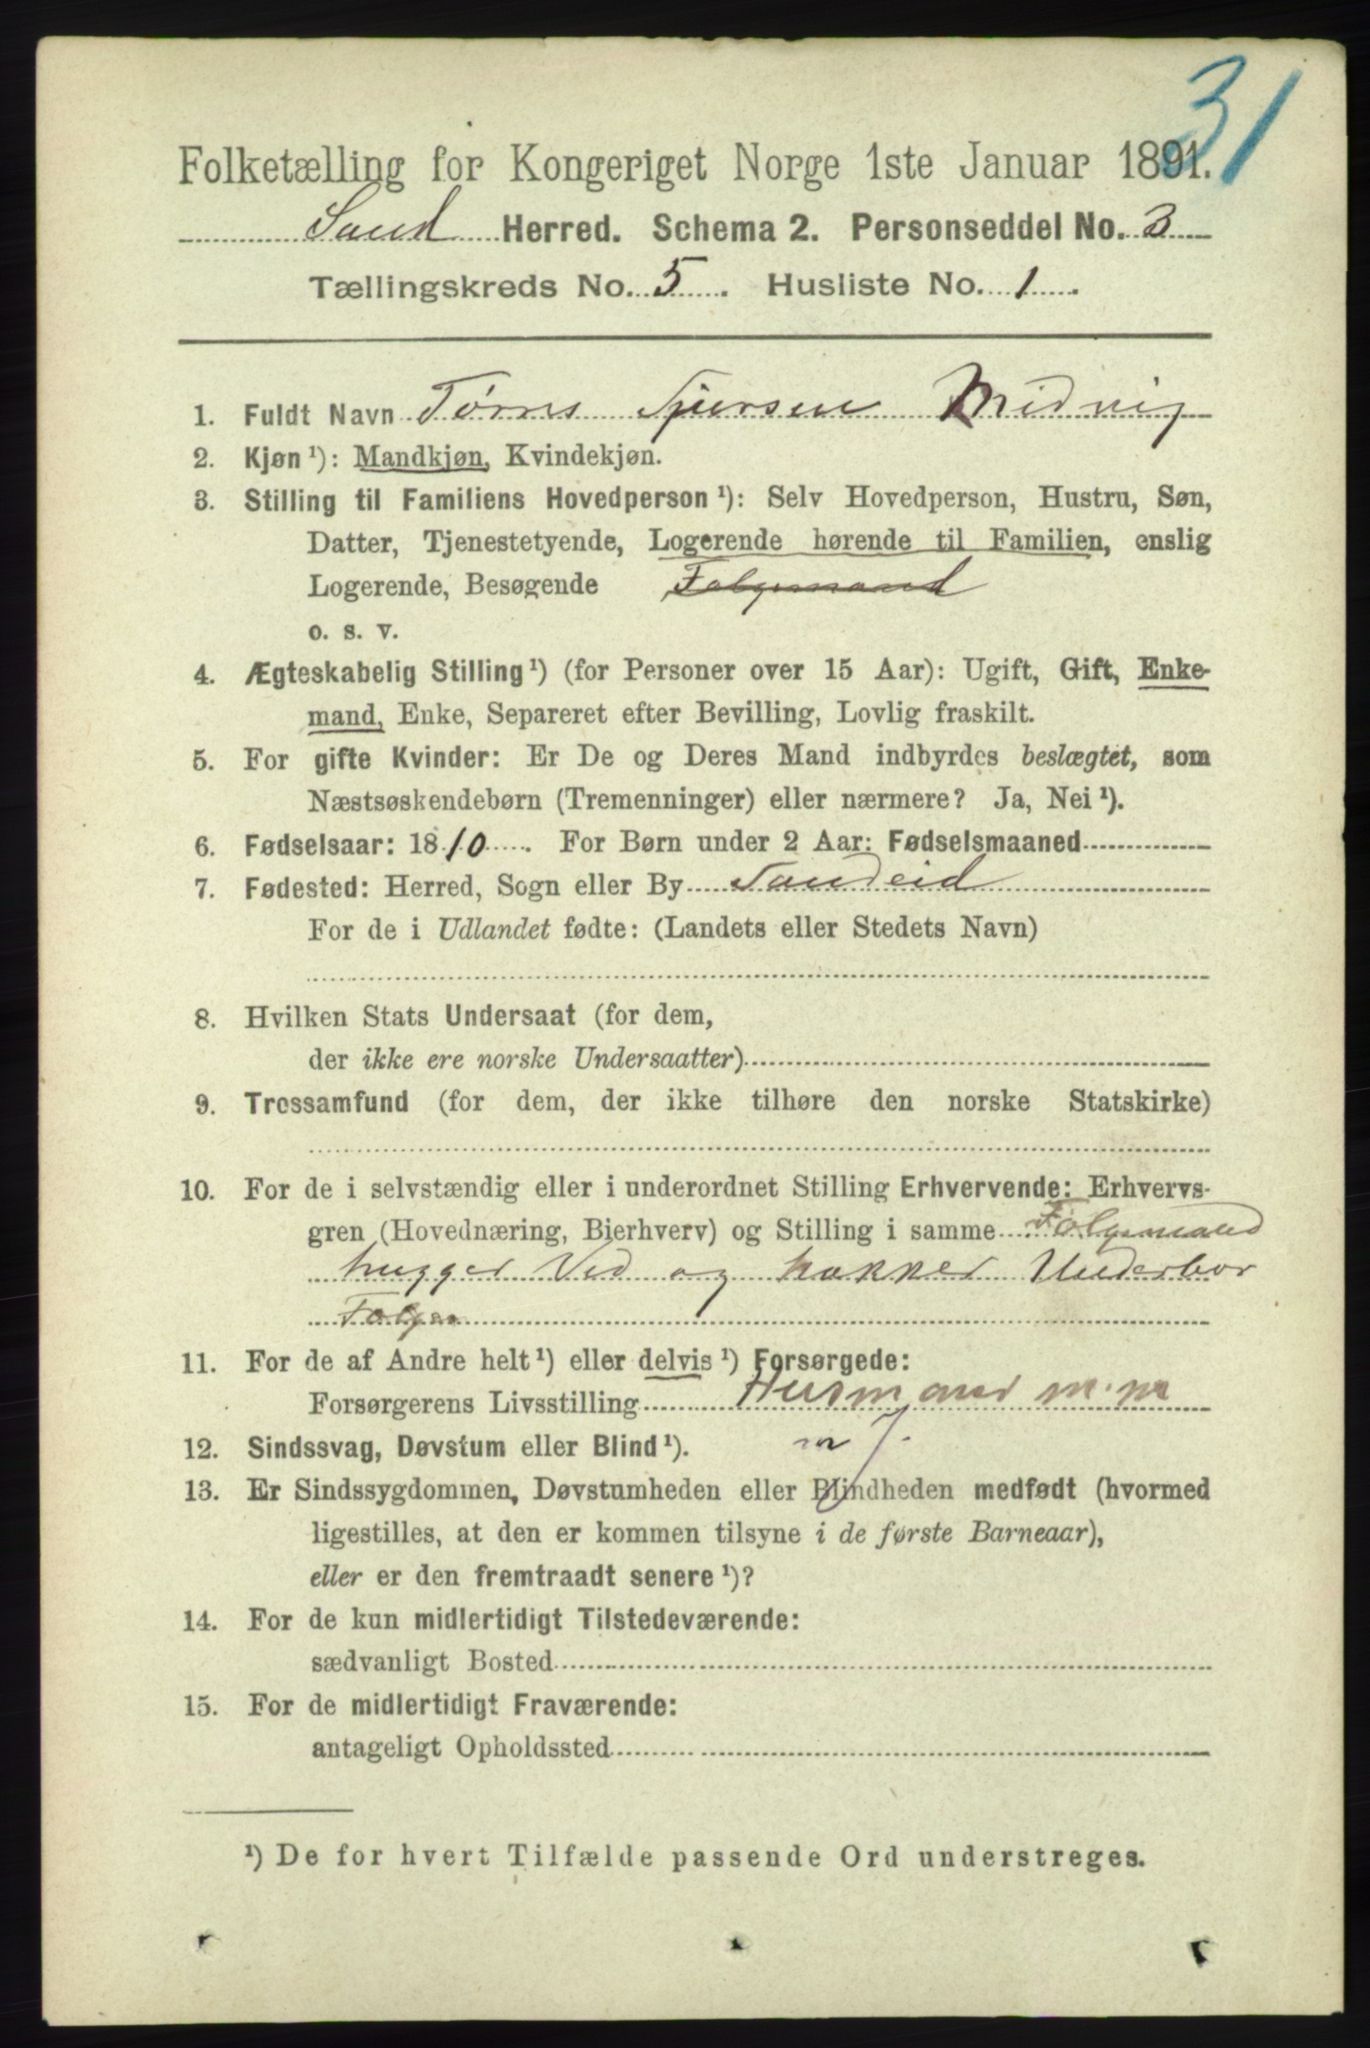 31
Folketælling for Kongeriget Norge 1ste Januar 1891.
Sand Herred. Schema 2. Personseddel No. 3
Tællingskreds No. 5. Husliste No. 1.
1. Fuldt Navn Tørres Sjursen Midvig
2. Kjøn ¹): Mandkjøn, Kvindekjøn.
3. Stilling til Familiens Hovedperson ¹): Selv Hovedperson, Hustru, Søn,
Datter, Tjenestetyende, Logerende hørende til Familien, enslig
Logerende, Besøgende Folgemand
o. s. v.
4. Ægteskabelig Stilling ¹) (for Personer over 15 Aar): Ugift, Gift, Enke-
mand, Enke, Separeret efter Bevilling, Lovlig fraskilt.
5. For gifte Kvinder: Er De og Deres Mand indbyrdes beslægtet, som
Næstsøskendebørn (Tremenninger) eller nærmere? Ja, Nei ¹).
6. Fødselsaar: 1810. For Børn under 2 Aar: Fødselsmaaned
7. Fødested: Herred, Sogn eller By Sandeid
For de i Udlandet fødte: (Landets eller Stedets Navn)
8. Hvilken Stats Undersaat (for dem,
der ikke ere norske Undersaatter)
9. Trossamfund (for dem, der ikke tilhøre den norske Statskirke)
10. For de i selvstændig eller i underordnet Stilling Erhvervende: Erhvervs-
gren (Hovednæring, Bierhverv) og Stilling i samme Folgemand
hugger Ved og hakker Underbar
Folgen
11. For de af Andre helt ¹) eller delvis ¹) Forsørgede:
Forsørgerens Livsstilling Husmand m. m
12. Sindssvag, Døvstum eller Blind ¹).
13. Er Sindssygdommen, Døvstumheden eller Blindheden medfødt (hvormed
ligestilles, at den er kommen tilsyne i de første Barneaar),
eller er den fremtraadt senere ¹)?
14. For de kun midlertidigt Tilstedeværende:
sædvanligt Bosted
15. For de midlertidigt Fraværende:
antageligt Opholdssted
¹) De for hvert Tilfælde passende Ord understreges.